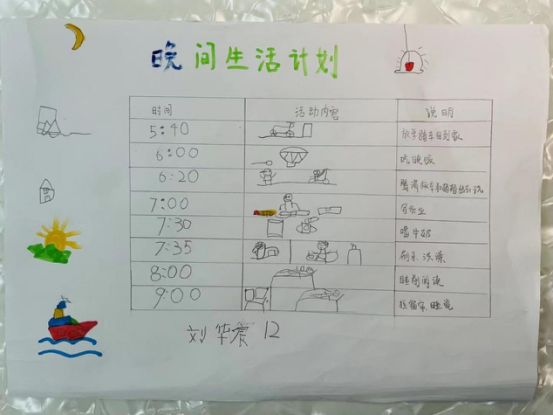 晚间生活计划
时间 活动内容 说明
5:40
6:00 吃晚饭
6:20
7:00 写作业
7:30 喝牛奶
7:35 刷牙、洗澡
8:00 睡前阅读
9:00 睡觉
刘华 12